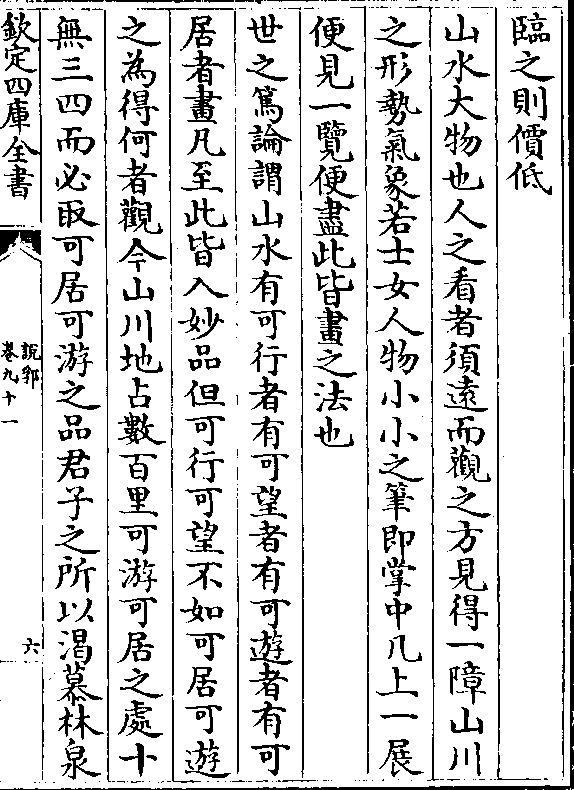 臨之則價低
山水大物也人之看者須遠而觀之方見得一障山川
之形勢氣象若士女人物小小之筆即掌中几上一展
便見一覽便盡此皆畫之法也
世之篤論謂山水有可行者有可望者有可遊者有可
居者畫凡至此皆入妙品但可行可望不如可居可遊
之為得何者觀今山川地占數百里可游可居之處十
無三四而必取可居可游之品君子之所以渴慕林泉
欽定四庫全書
說郛
卷九十一
六